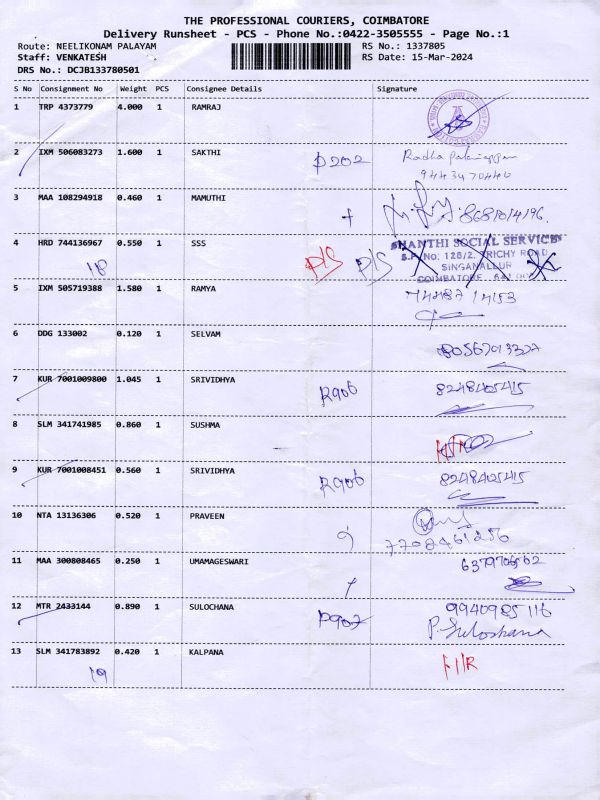 THE PROFESSIONAL COURIERS, COIMBATORE
Delivery Runsheet - PCS - Phone No.:0422-3505555 - Page No.:1
Route: NEELIKONAM PALAYAM RS No.: 1337805
Staff: VENKATESH RS Date: 15-Mar-2024
DRS No.: DCJB133780501
S No Consignment No Weight PCS Consignee Details Signature
1 TRP 4373779 4.000 1 RAMRAJ
2 IXM 506083273 1.600 1 SAKTHI P202 Radha
9443470440
3 MAA 108294918 0.460 1 MAMUTHI 8681014196.
4 HRD 744136967 0.550 1 SSS D/S D/S SHANTHI SOCIAL SERVICES
S.F. No: 128/2, TRICHY ROAD
18 SINGANALLUR
COIMBATORE
5 IXM 505719388 1.580 1 RAMYA 74487 14153
6 DDG 133002 0.120 1 SELVAM
7 KUR 7001009800 1.045 1 SRIVIDHYA R906 8248405415
8 SLM 341741985 0.860 1 SUSHMA
9 KUR 7001008451 0.560 1 SRIVIDHYA R906 8248405415
10 NTA 13136306 0.520 1 PRAVEEN
11 MAA 300808465 0.250 1 UMAMAGESWARI
12 MTR 2433144 0.890 1 SULOCHANA P907 9940985116
P. Sulochana
13 SLM 341783892 0.420 1 KALPANA
19